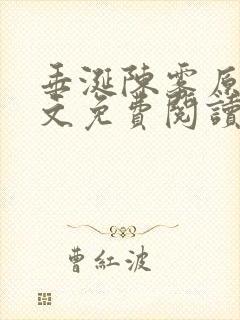 垂涎陳雯原
文免費閱讀
曹紅波